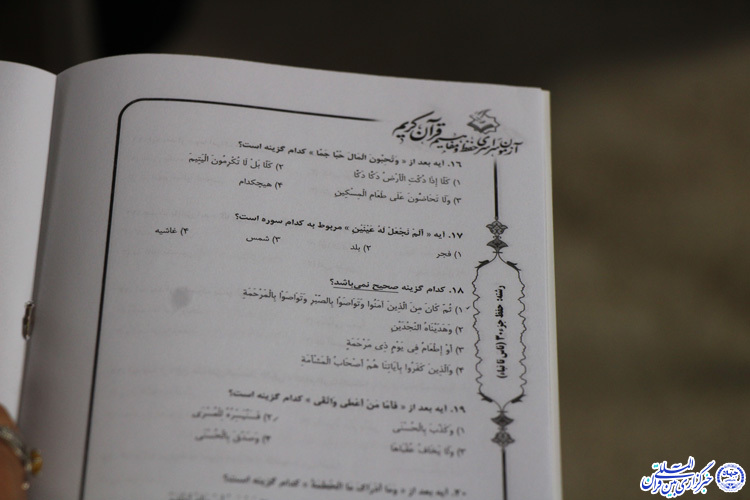 آزمون سراسری حفظ و مفاهیم قرآن کریم
۱۶. آیه بعد از « وَتُحِبُّونَ الْمَالَ حُبًّا جَمًّا » کدام گزینه است؟
۱) كَلَّا إِذَا دُكَّتِ الْأَرْضُ دَكًّا دَكًّا ۲) كَلَّا بَلْ لَا تُكْرِمُونَ الْيَتِيمَ
۳) وَلَا تَحَاضُّونَ عَلَى طَعَامِ الْمِسْكِينِ ۴) هیچکدام
۱۷. آیه « أَلَمْ نَجْعَلْ لَهُ عَيْنَيْنِ » مربوط به کدام سوره است؟
۱) فجر ۲) بلد ۳) شمس ۴) غاشیه
۱۸. کدام گزینه صحیح نمی‌باشد؟
۱) ثُمَّ كَانَ مِنَ الَّذِينَ آمَنُوا وَتَوَاصَوْا بِالصَّبْرِ وَتَوَاصَوْا بِالْمَرْحَمَةِ
۲) وَهَدَيْنَاهُ النَّجْدَيْنِ
۳) أَوْ إِطْعَامٌ فِي يَوْمٍ ذِي مَرْحَمَةٍ
۴) وَالَّذِينَ كَفَرُوا بِآيَاتِنَا هُمْ أَصْحَابُ الْمَشْأَمَةِ
۱۹. آیه بعد از « فَأَمَّا مَنْ أَعْطَى وَاتَّقَى » کدام گزینه است؟
۱) وَكَذَّبَ بِالْحُسْنَى ۲) فَسَنُيَسِّرُهُ لِلْعُسْرَى
۳) وَلَا يَخَافُ عُقْبَاهَا ۴) وَصَدَّقَ بِالْحُسْنَى
۲۰. آیه بعد از « وَمَا أَدْرَاكَ مَا الْحُطَمَةُ » کدام گزینه است؟
رشته: حفظ جزء ۳۰ (ناس تا نباء)
خبرگزاری بین المللی قرآن